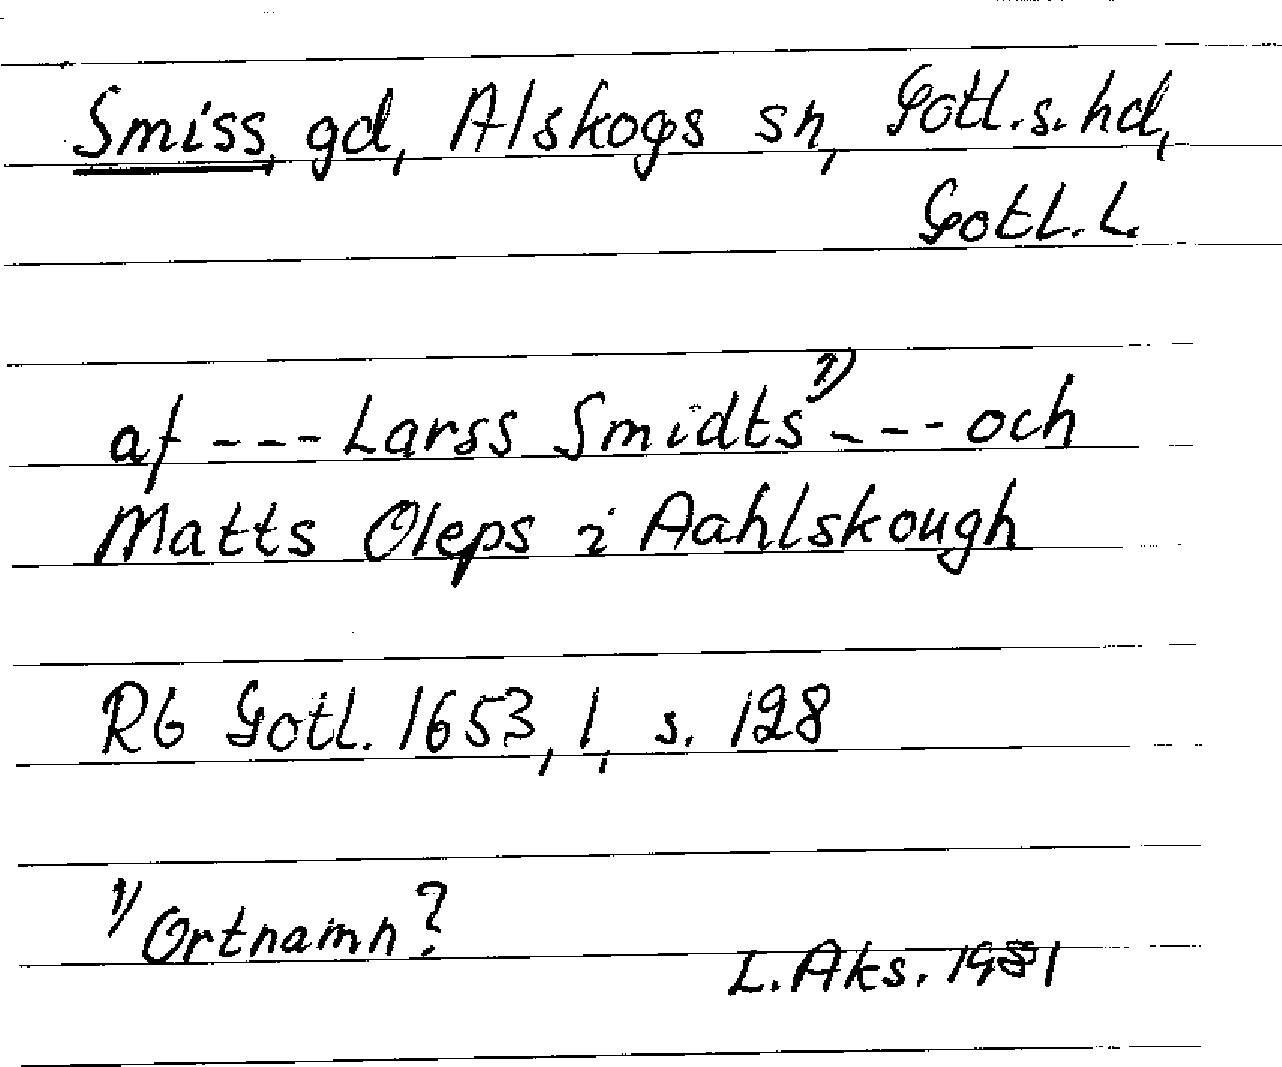 Smiss, gd, Alskogs sn, Gotl.s.hd,
Gotl.L.
af --- Larss Smidts¹⁾ --- och
Matts Oleps i Aahlskough
Rb Gotl. 1653, 1, s. 128
¹⁾ Ortnamn?
L. Aks. 1981